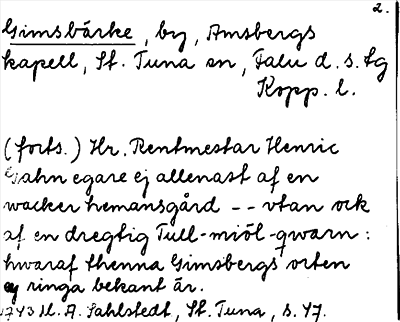 2.
Gimsbärke, by, Amsbergs
kapell, St. Tuna sn, Falu d. s. tg
Kopp. l.
(forts.) Hr. Rentmestar Henric
Gahn egare ej allenast af en
wacker hemansgård -- vtan ock
af en dregtig Tull-miöl-qwarn:
hwaraf thenna Gimsbergs orten
ej ringa bekant är.
1743 M. A. Sahlstedt, St. Tuna, s. 47.